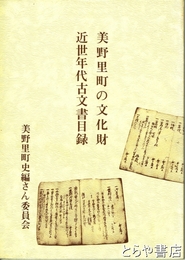 美野里町の文化財
近世年代古文書目録
美野里町史編さん委員会
とらや書店